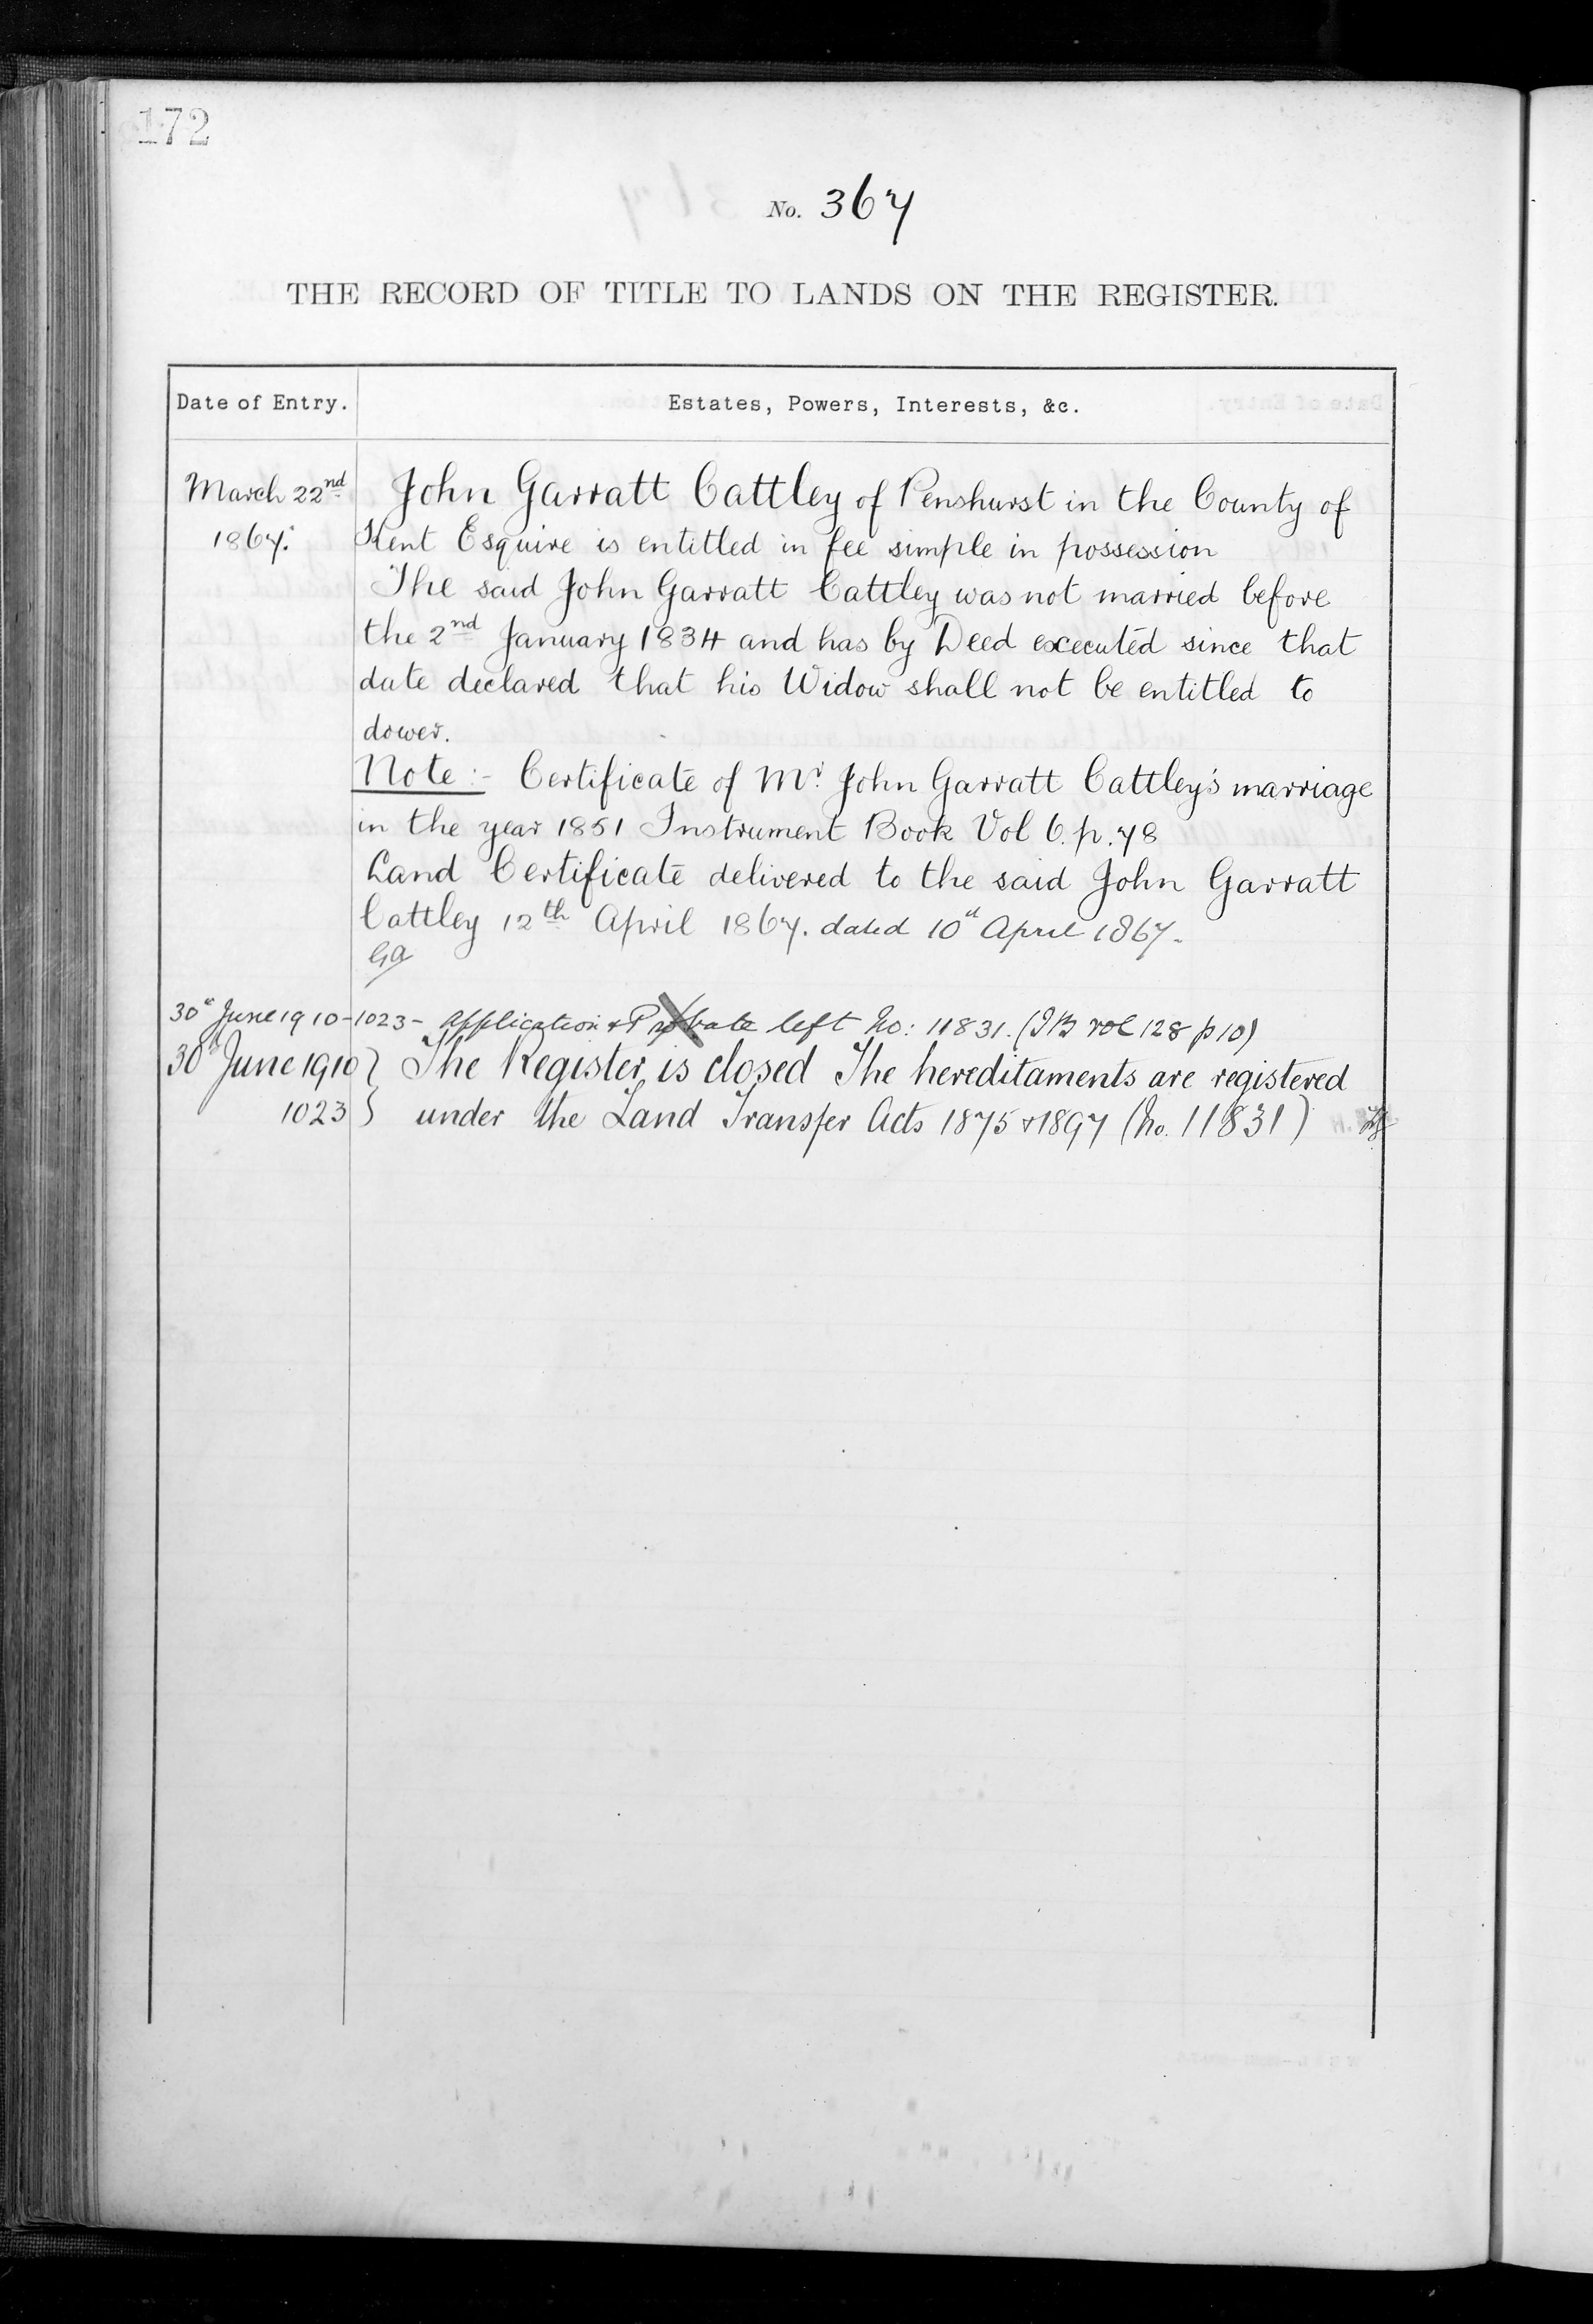 172
No. 367
THE RECORD OF TITLE TO LANDS ON THE REGISTER.
Date of Entry. Estates, Powers, Interests, &c.
March 22nd John Garratt Cattley of Penshurst in the County of
1867. Kent Esquire is entitled in fee simple in possession
The said John Garratt Cattley was not married before
the 2nd January 1834 and has by Deed executed since that
date declared that his Widow shall not be entitled to
dower.
Note:- Certificate of Mr. John Garratt Cattley's marriage
in the year 1851 Instrument Book Vol 6. p. 78
Land Certificate delivered to the said John Garratt
Cattley 12th April 1867. dated 10th April 1867.
30th June 1910 - 1023 - Application & Probate left No: 11831. (IB vol 128 p 10)
30th June 1910 } The Register is closed The hereditaments are registered
1023 } under the Land Transfer Acts 1875 & 1897 (No. 11831)